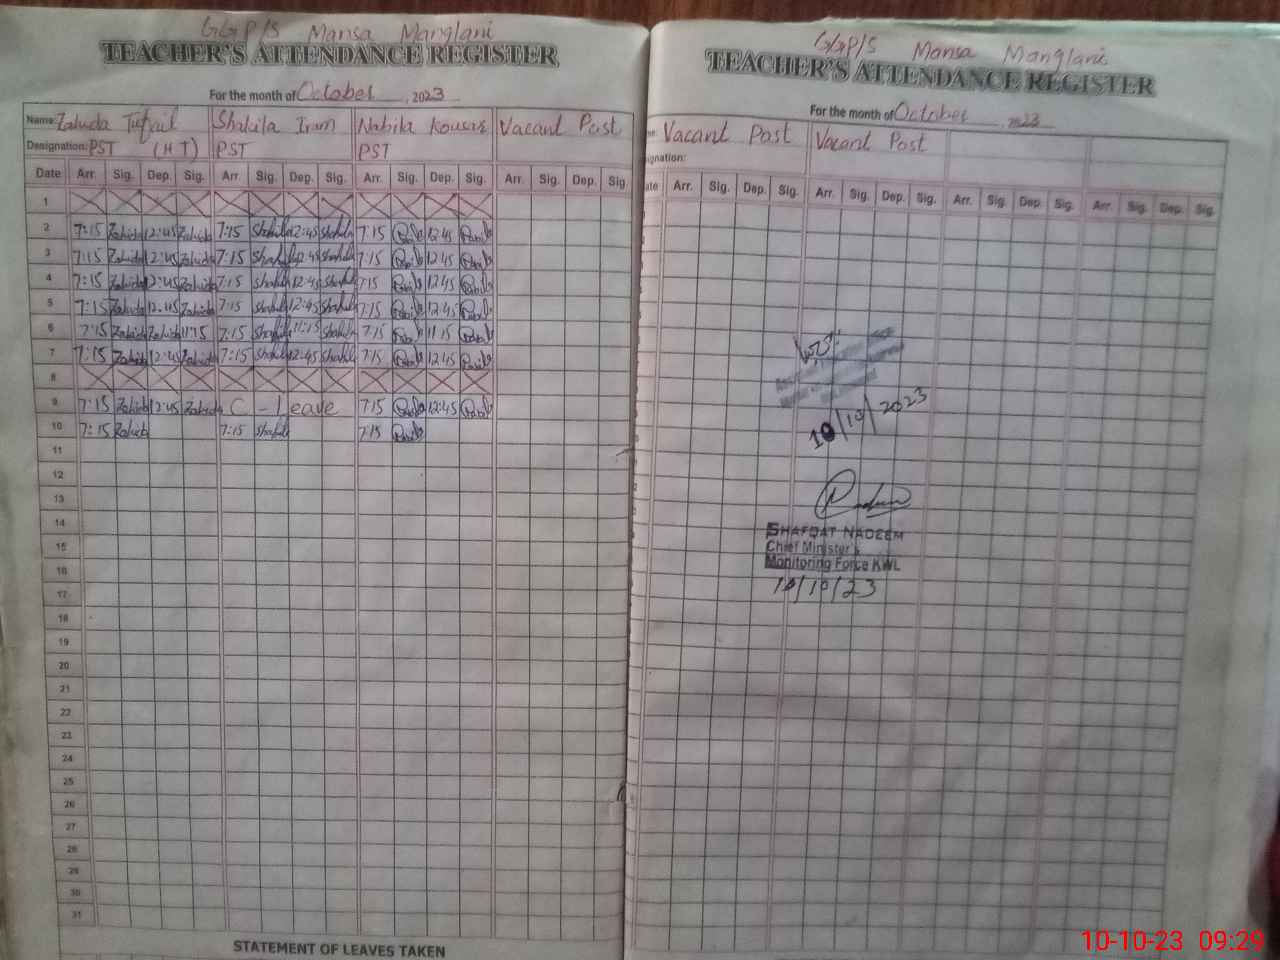 GGP/S Mansa Manglani
TEACHER'S ATTENDANCE REGISTER
For the month of October, 2023
Name: Zahida Tufail Shakila Iram Nabila Kousar Vacant Post
Designation: PST (HT) PST PST
Date Arr. Sig. Dep. Sig. Arr. Sig. Dep. Sig. Arr. Sig. Dep. Sig. Arr. Sig. Dep. Sig.
1
2 7:15 Zahida 12:45 Zahida 7:15 Shakila 12:45 Shakila 7:15 12:45
3 7:15 Zahida 12:45 Zahida 7:15 Shakila 12:45 Shakila 7:15 12:45
4 7:15 Zahida 12:45 Zahida 7:15 Shakila 12:45 Shakila 7:15 12:45
5 7:15 Zahida 12:45 Zahida 7:15 Shakila 12:45 Shakila 7:15 12:45
6 7:15 Zahida Zahida 11:15 7:15 Shakila 11:15 Shakila 7:15 11:15
7 7:15 Zahida 12:45 Zahida 7:15 Shakila 12:45 Shakila 7:15 12:45
8
9 7:15 Zahida 12:45 Zahida C - Leave 7:15 12:45
10 7:15 Zahida 7:15 Shakila 7:15
11
12
13
14
15
16
17
18
19
20
21
22
23
24
25
26
27
28
29
30
31
STATEMENT OF LEAVES TAKEN
GGP/S Mansa Manglani
TEACHER'S ATTENDANCE REGISTER
For the month of October, 2023
Vacant Post Vacant Post
ignation:
ate Arr. Sig. Dep. Sig. Arr. Sig. Dep. Sig. Arr. Sig. Dep. Sig. Arr. Sig. Dep. Sig.
10/10/2023
SHAFQAT NADEEM
Chief Minister's
Monitoring Force KWL
10/10/23
10-10-23 09:29